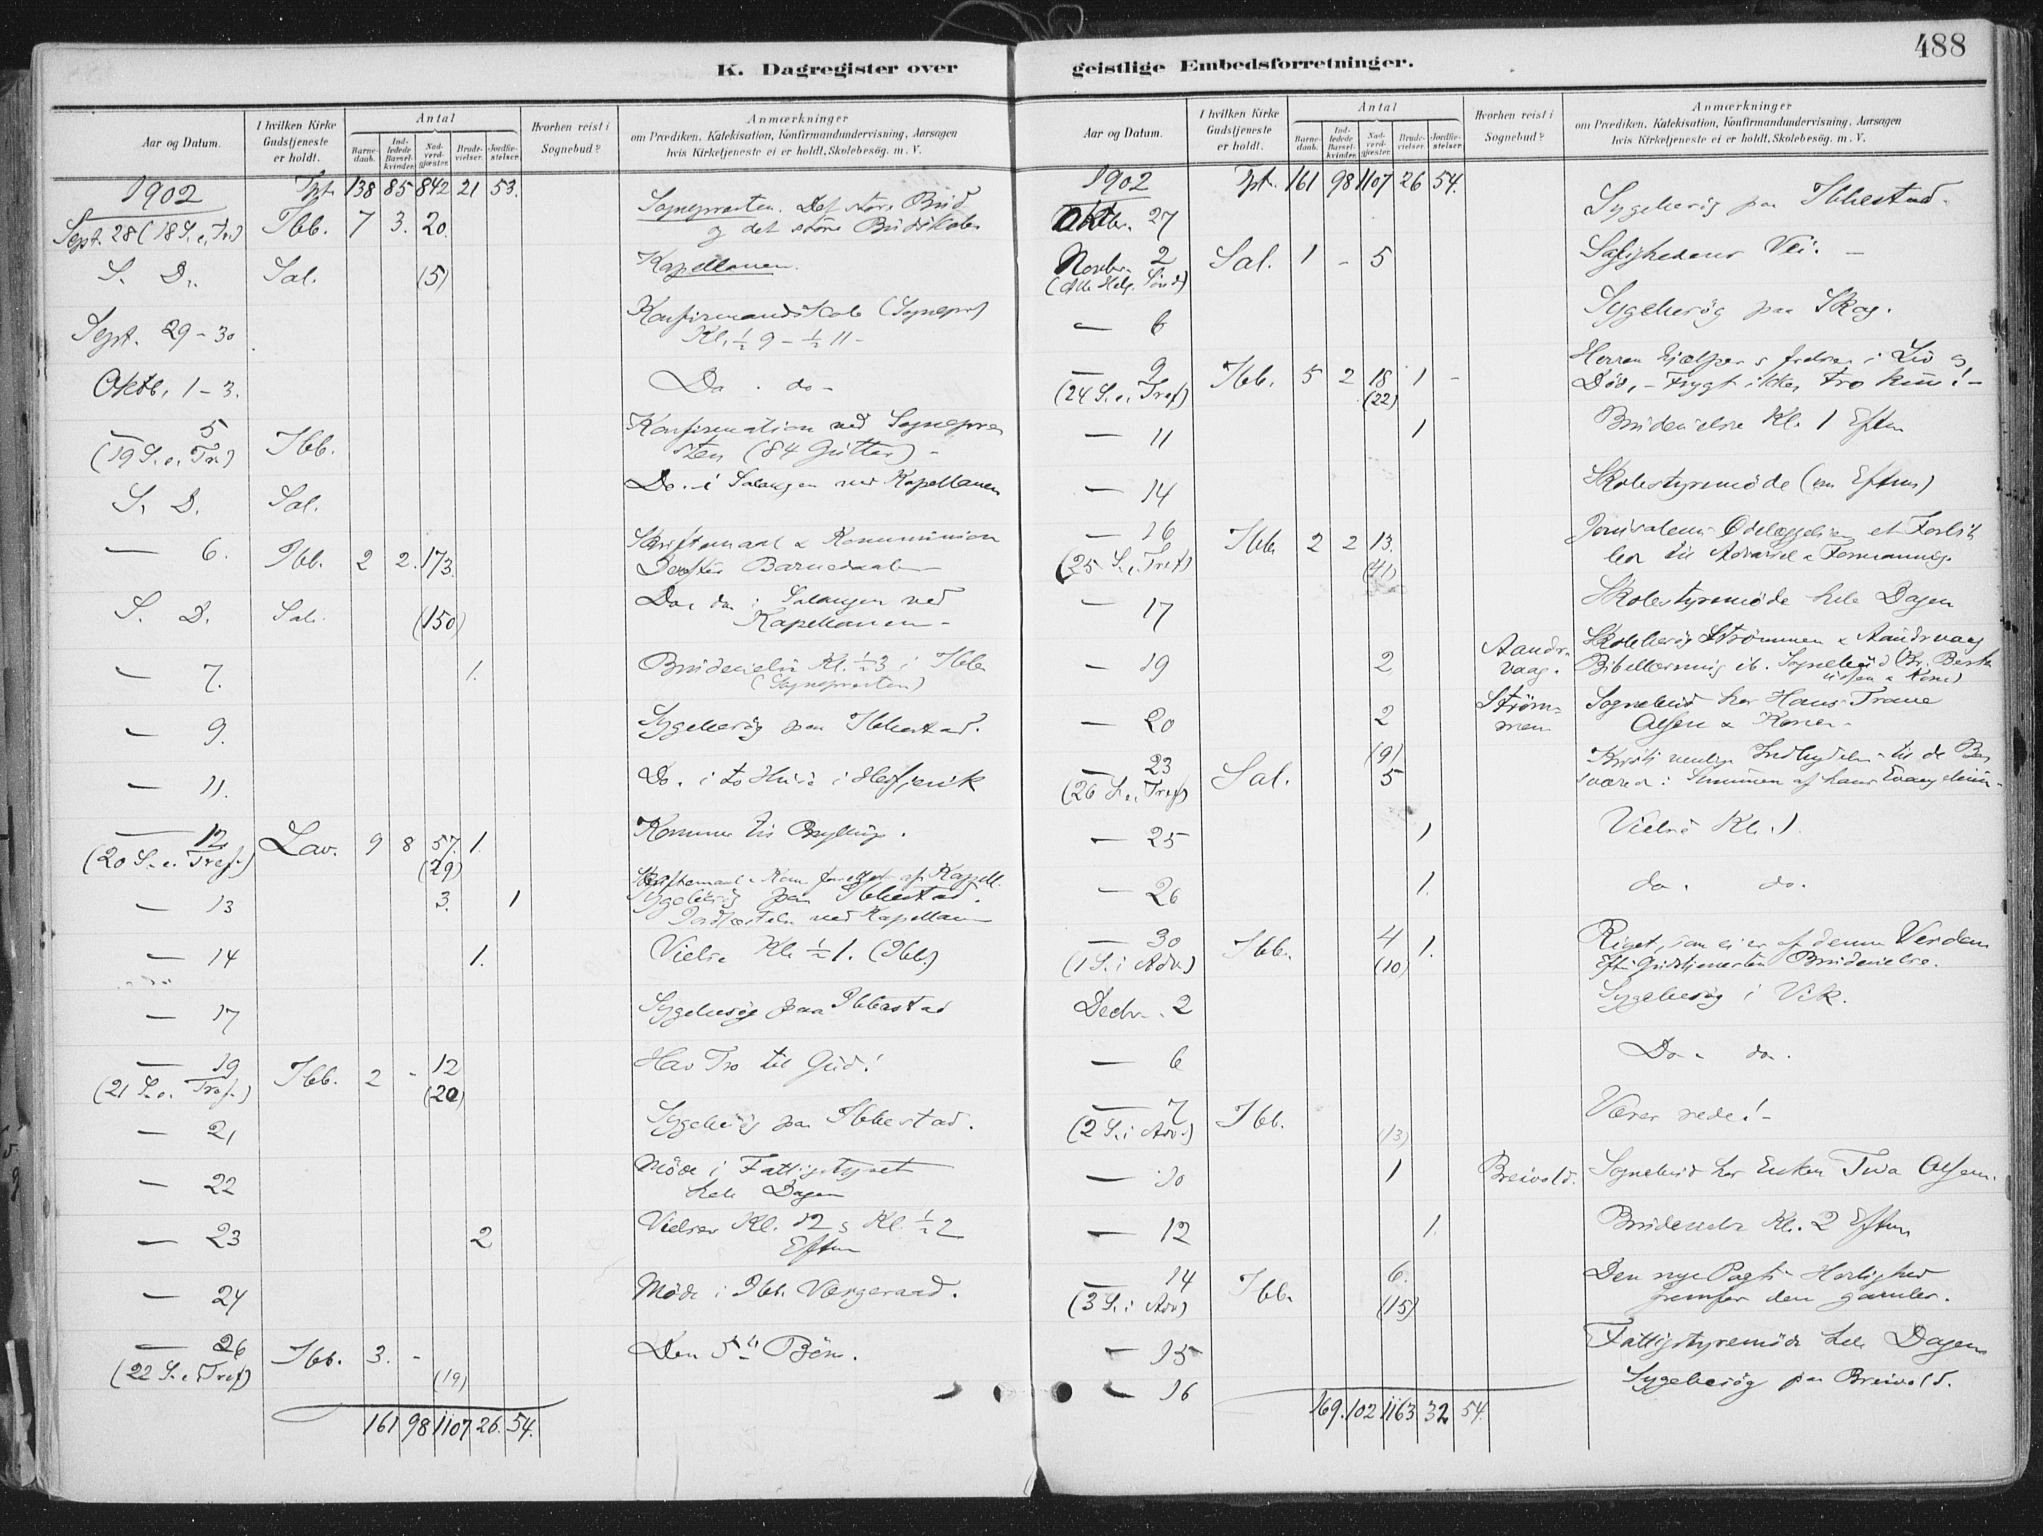 488
K. Dagregister over
geistlige Embedsforretninger.
Aar og Datum.
I hvilken Kirke Gudstjeneste er holdt.
Antal
Barne-daab.
Ind-ledede Barsel-kvinder.
Nad-verd-gjæster.
Brude-vielser.
Jordfæ-stelser.
Hvorhen reist i Sognebud?
Anmærkninger
om Prædiken, Katekisation, Konfirmandundervisning, Aarsagen
hvis Kirketjeneste ei er holdt, Skolebesøg. m. V.
1902 Tpt. 138 85 842 21 53.
Sept. 28 (18 S. e. Tr.) Ibb. 7 3. 20. Sognepresten. Det store Bud
og det større Budskab
S. D. Sal. (5) Kapellanen.
Sept. 29-30 Konfirmandskole (Sognepr)
Kl. ½ 9 - ½ 11 -
Oktb. 1-3. Do. do-
— 5 (19 S. e. Tr.) Ibb. Konfirmation ved Sognepre
sten (84 Gutter) -
S. D. Sal. Do. i Salangen ved Kapellanen
— 6. Ibb. 2 2. 173. Skriftemaal & Kommunion
Derefter Barnedaab
S. D. Sal. (150) Do. do i Salangen ved
Kapellanen -
— 7. 1. Brudevielse Kl. ½3 i Ibb.
(Sognepresten)
— 9. Sygebesøg paa Ibbestad.
— 11. Do. i to Huse i
— 12 (20 S. e. Tref.) Lav. 9 8 57. 1. (29) Komme til
— 13 3. 1 Skriftemaal af Kapell.
Sygebesøg paa Ibbestad.
Jordfæstelse ved Kapellanen
— 14 1. Vielse Kl. ½ 1. (Ibb)
— 17 Sygebesøg paa Ibbestad
— 19 (21 S. e. Tref.) Ibb. 2 - 12 (20) Hav Tro til Gud!
— 21 Sygebesøg paa Ibbestad.
— 22 Møde i Fattigstyret
hele Dagen
— 23 2 Vielser Kl. 12 & Kl. ½ 2
Eftm
— 24 Møde i Ibb. Værgeraad.
— 26 (22 S. e. Tref) Ibb. 3. - (19) Den 5te Bøn.
161 98 1107 26. 54.
Aar og Datum.
I hvilken Kirke Gudstjeneste er holdt.
Antal
Barne-daab.
Ind-ledede Barsel-kvinder.
Nad-verd-gjæster.
Brude-vielser.
Jordfæ-stelser.
Hvorhen reist i Sognebud?
Anmærkninger
om Prædiken, Katekisation, Konfirmandundervisning, Aarsagen
hvis Kirketjeneste ei er holdt, Skolebesøg. m. V.
1902 Tpt. 161 98 1107 26 54.
Oktbr. 27 Sygebesøg paa Ibbestad.
Novbr. 2 (Alle Helg. Sønd) Sal. 1 - 5 Salighedens Vei. -
— 6 Sygebesøg paa Skog.
— 9 (24 S. e. Tref) Ibb. 5 2 18 (22) 1 - Herren hjælper & frelser i Liv og
Død, - Frygt ikke, tro kun! -
— 11 1 Brudevielse Kl. 1 Eftm
— 14 Skolestyremøde (om Eftm)
— 16 (25 S. e. Tref) Ibb. 2 2 13. (41) Jerusalems Ødelæggelse et Forbil
led til Advarsel & Formaning.
— 17 Skolestyremøde hele Dagen
— 19 2 Aandr-vaag. Skolebesøg Strømmen & Aandrvaag
Bibellæsning ib. Sognebud
— 20 2 Strøm-men Sognebud hos Hans Trane
Olsen & Konen -
— 23 (26 S. e. Tref) Sal. (9) 5 Kristi venlige Indbydelse til de Be
sværede: Summen af hans Evangelium -
— 25 1 Vielse Kl. 1.
— 26 1. do. do.
— 30 (1 S. i Adv.) Ibb. 4 (10) 1. Riget, som ei er af denne Verden
Efter Gudstjenesten Brudevielse.
Decbr. 2 Sygebesøg i Vik.
— 6 Do. do.
— 7 (2 S. i Adv.) Ibb. (13) Værer rede! -
— 10 1 Breivold. Sognebud hos Enken Olsen.
— 12 1. Brudevielse Kl. 2 Eftm
— 14 (3 S. i Adv) Ibb. 6. (15) Den nye Pagts Herlighed
fremfor den gamles.
— 15 Fattigstyremøde hele Dagen
— 16 Sygebesøg paa Breivold.
169. 102 1163 32 54.